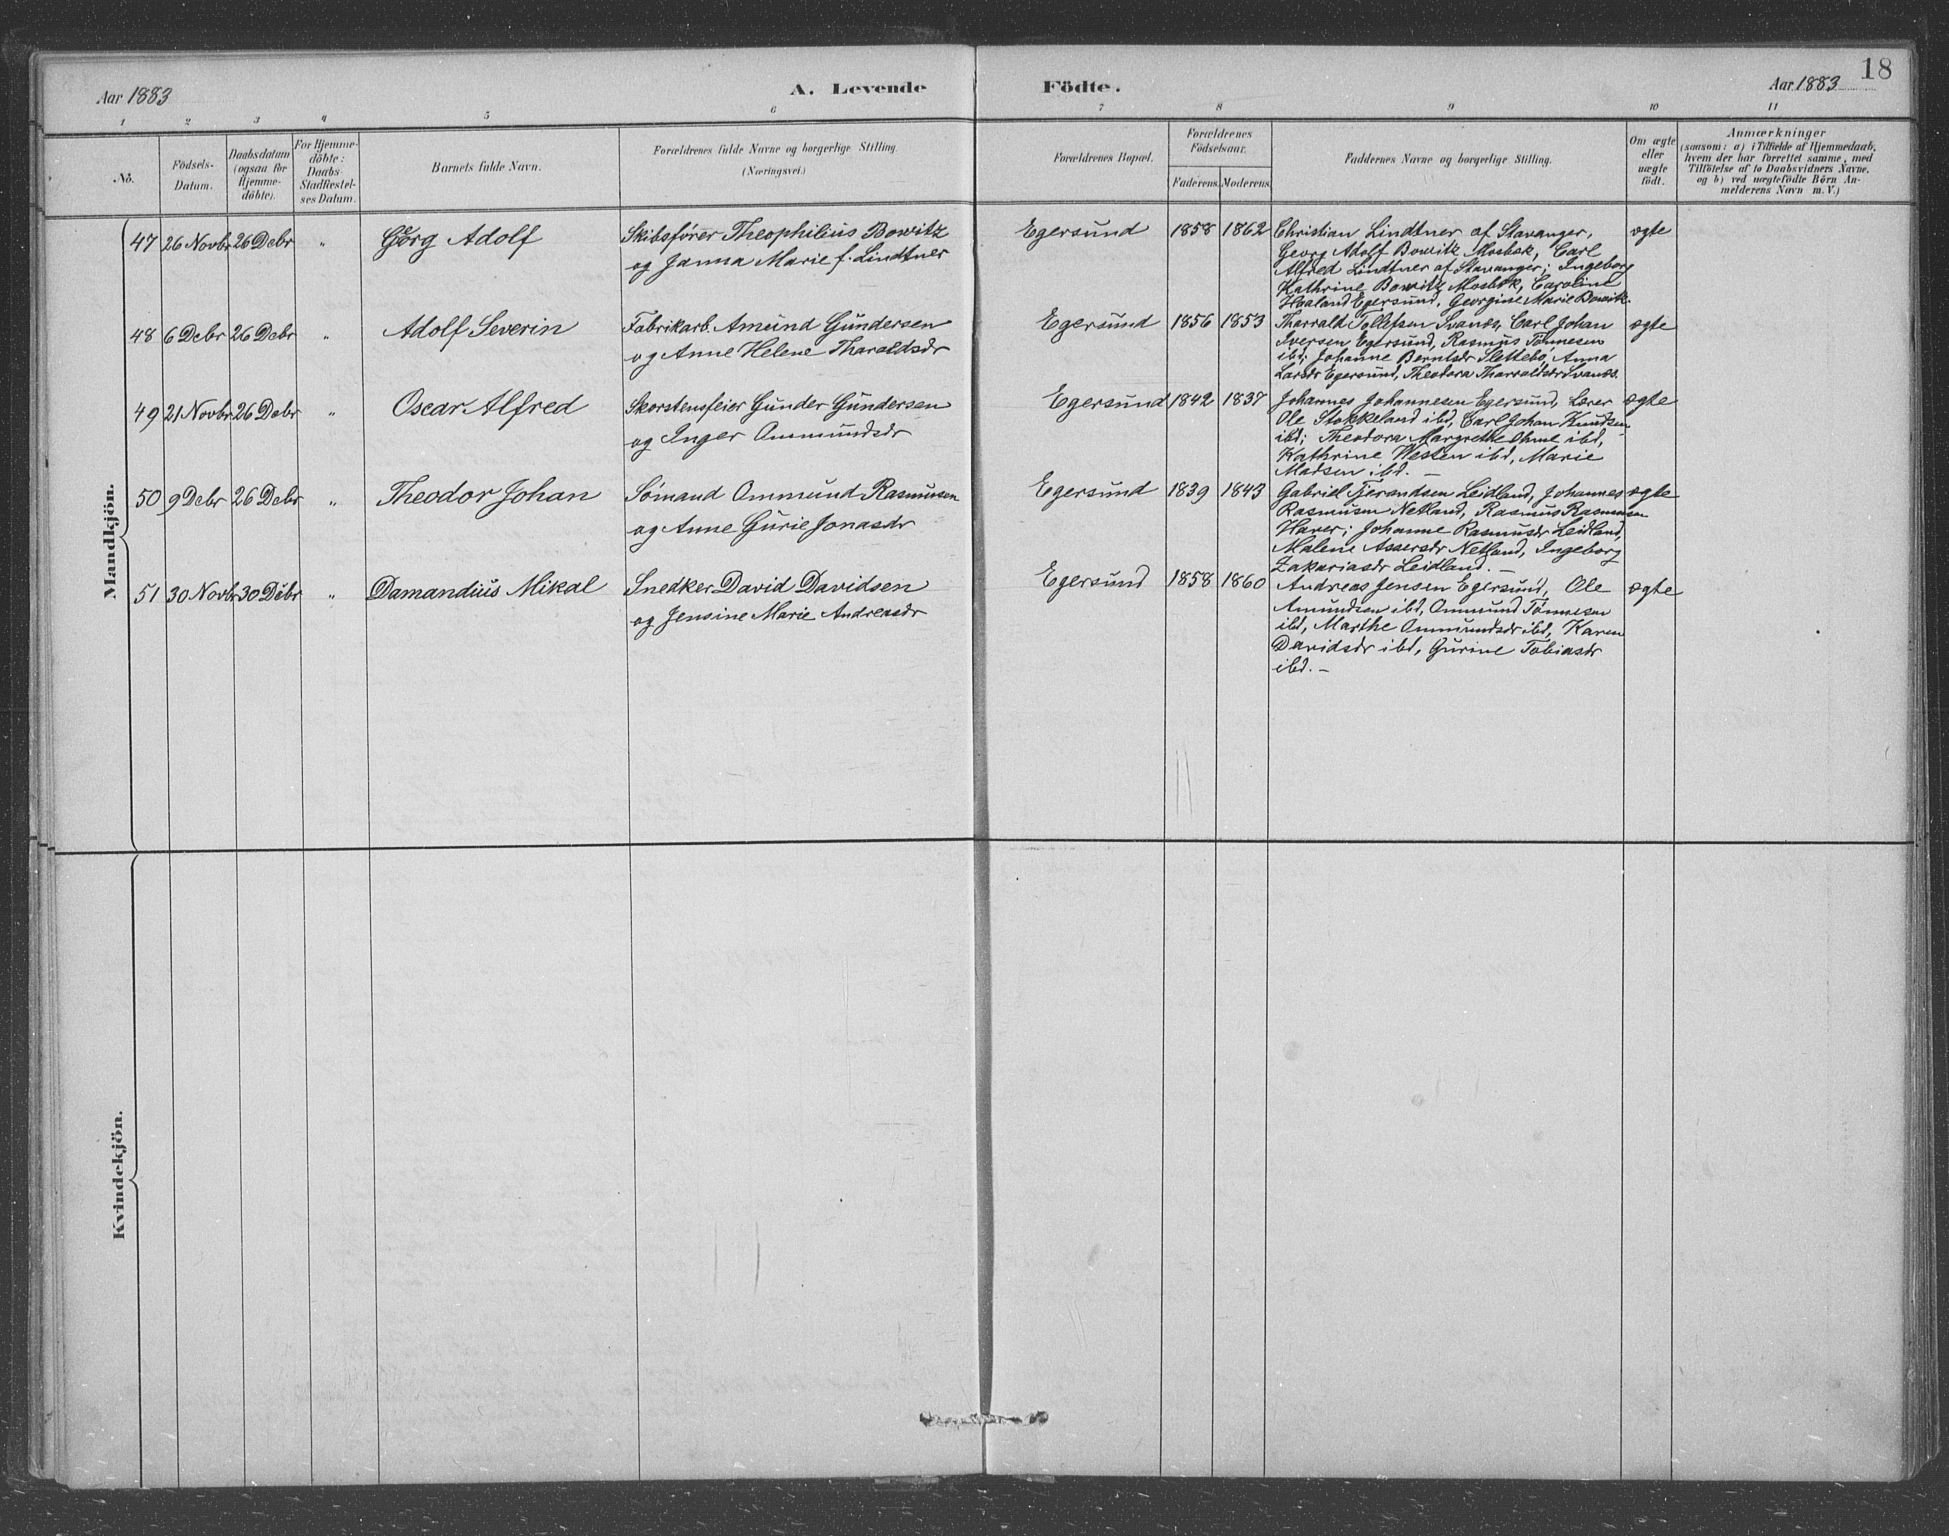 18
Aar 1883
A. Levende Födte.
Aar 1883
1 2 3 4 5 6 7 8 9 10 11
No.
Födsels-
Datum.
Daabsdatum
(ogsaa for
Hjemme-
döbte).
For Hjemme-
döbte:
Daabs-
Stadfæstel-
ses Datum.
Barnets fulde Navn.
Forældrenes fulde Navne og borgerlige Stilling.
(Næringsvei.)
Forældrenes Bopæl.
Forældrenes
Födselsaar.
Faderens. Moderens.
Faddernes Navne og borgerlige Stilling.
Om ægte
eller
uægte
födt.
Anmærkninger
(saasom: a) i Tilfælde af Hjemmedaab,
hvem der har forrettet samme, med
Tilföielse af to Daabsvidners Navne,
og b) ved uægtefödte Börn An-
melderens Navn m. V.)
Mandkjön.
47 26 Novbr 26 Debr " Georg Adolf
Skibsfører Theophilius Bowitz
og Janna Marie f. Lindtner
Egersund 1858 1862
Christian Lindtner af Stavanger,
Georg Adolf Bowitz Mosbøk, Carl
Alfred Lindtner af Stavanger; Ingeborg
Kathrine Bowitz Mosbøk, Caroline
Haaland Egersund, Georgine Marie Bowitz.
ægte
48 6 Debr 26 Debr " Adolf Severin
Fabrikarb. Amund Gundersen
og Anne Helene Tharaldsdr
Egersund 1856 1853
Tharrald Tollefsen Svanes, Carl Johan
Iversen Egersund, Rasmus Tønnesen
ibd; Johanne Berntsdr Slettebø, Anna
Larsdr Egersund, Theodora Tharraldsdr Svanes.
ægte
49 21 Novbr 26 Debr " Oscar Alfred
Skorstensfeier Gunder Gundersen
og Inger Ommundsdr
Egersund 1842 1837
Johannes Johannesen Egersund, Lærer
Ole Stokkeland ibd, Carl Johan Knudsen
ibd; Theodora Margrethe Ohme ibd,
Kathrine Westen ibd, Marie
Madsen ibd. —
ægte
50 9 Debr 26 Debr " Theodor Johan
Sømand Ommund Rasmussen
og Anne Gurie Jonasdr
Egersund 1839 1843
Gabriel Tjerandsen Leidland, Johannes
Rasmussen Netland, Rasmus Rasmussen
Haver; Johanne Rasmusdr Leidland,
Malene Assersdr Netland, Ingeborg
Zakariasdr Leidland. —
ægte
51 30 Novbr 30 Debr " Damandius Mikal
Snedker David Davidsen
og Jensine Marie Andreasdr
Egersund 1858 1860
Andreas Jensen Egersund, Ole
Amundsen ibd, Ommund Tønnesen
ibd, Marthe Ommundsdr ibd, Karen
Davidsdr ibd, Gurine Tobiasdr
ibd. —
ægte
Kvindekjön.